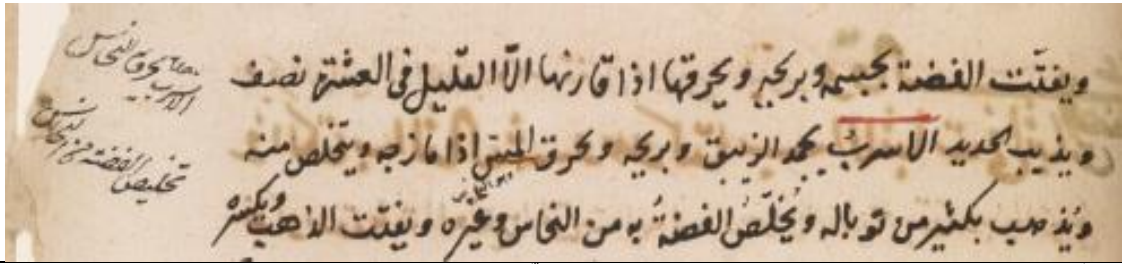 ويفتت الفضة بجسمه وبريحه ويحرقها اذا قارنها الا القليل فى العشرة نصف
ويذيب الحديد الاسرب يجمد الزيبق وبريحه ويحرق المس اذا مازجه ويتخلص منه
ويذهب بكثير من توباله ويُخلّصُ الفضةُ به من النحاس وغيره ويفتت الذهب ويكسره
الاسرب يحرق النحاس
تخليص الفضة من النحاس